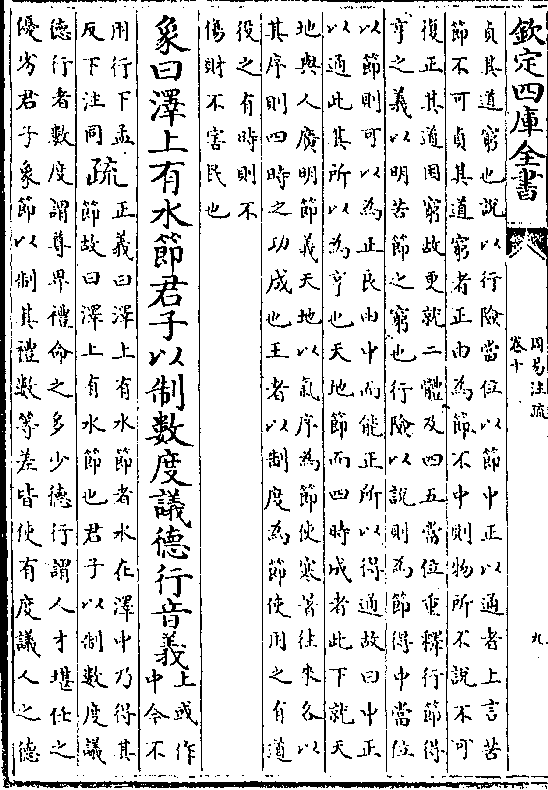 欽定四庫全書
周易注疏
卷十
九
貞其道窮也説以行險當位以節中正以通者上言苦
節不可貞其道窮者正由為節不中則物所不說不可
復正其道困窮故更就二體及四五當位重釋行節得
亨之義以明苦節之窮也行險以說則為節得中當位
以節則可以為正良由中而能正所以得通故曰中正
以通此其所以為亨也天地節而四時成者此下就天
地與人廣明節義天地以氣序為節使寒暑往來各以
其序則四時之功成也王者以制度為節使用之有道
役之有時則不
傷財不害民也
象曰澤上有水節君子以制數度議德行音義上或作
中今不
用行下孟
反下注同疏正義曰澤上有水節者水在澤中乃得其
節故曰澤上有水節也君子以制數度議
德行者數度謂尊卑禮命之多少德行謂人才堪任之
優劣君子象節以制其禮數等差皆使有度議人之德